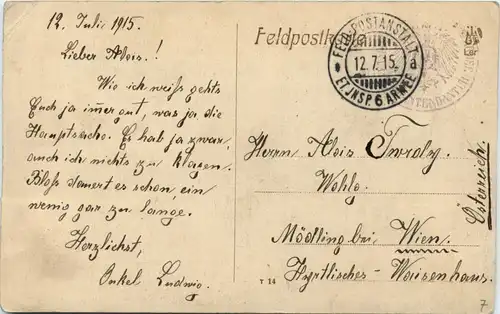 12. Juli 1915.
Lieber Alois.!
Wie ich weiß gehts
Euch ja im̅er gut, was ja die
Hauptsache. Es hab ja zwar,
auch ich nichts zu klagen.
Bloß dauert es schon, ein
wenig gar zu lange.
Herzlichst,
Onkel Ludwig.
Feldpostkarte
FELDPOSTANSTALT
12.7.15. a
ET.JNSP. 6 ARMEE
Herrn Alois Twrdy.
Wohlg.
Mödling bei Wien.
Hyrtlisches-Waisenhaus.
Österreich.
T 14
7